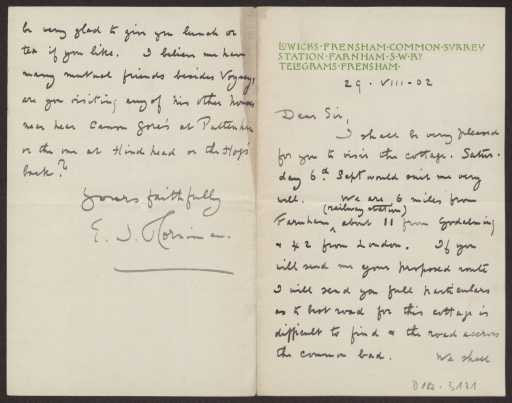 LOWICKS · FRENSHAM · COMMON · SVRREY
STATION · FARNHAM · S · W · RY
TELEGRAMS · FRENSHAM ·
29 · VIII · 02
Dear Sir,
I shall be very pleased
for you to visit the cottage. Satur-
day 6th Sept would suit me very
well. We are 6 miles from
(railway station)
Farnham, about 11 from Godalming
& 42 from London. If you
will send me your proposed route
I will send you full particulars
as to best road for this cottage is
difficult to find & the road across
the common bad. We shall
be very glad to give you lunch or
tea if you like. I believe we have
many mutual friends besides Voysey,
are you visiting any of his other houses
near here Canon Grane's at Puttenham
or the one at Hindhead or the Hog's
back?
Yours faithfully
E. J. Horniman.